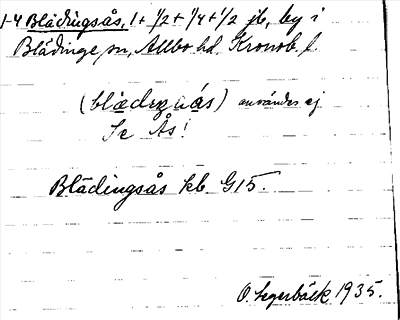 1-4 Blädingsås, 1 + 1/2 + 1/4 + 1/2 jb, by i
Blädinge sn, Allbo hd. Kronob. l.
användes ej
Se Ås!
Blädingsås kb G15.
O. Segerbäck 1935.